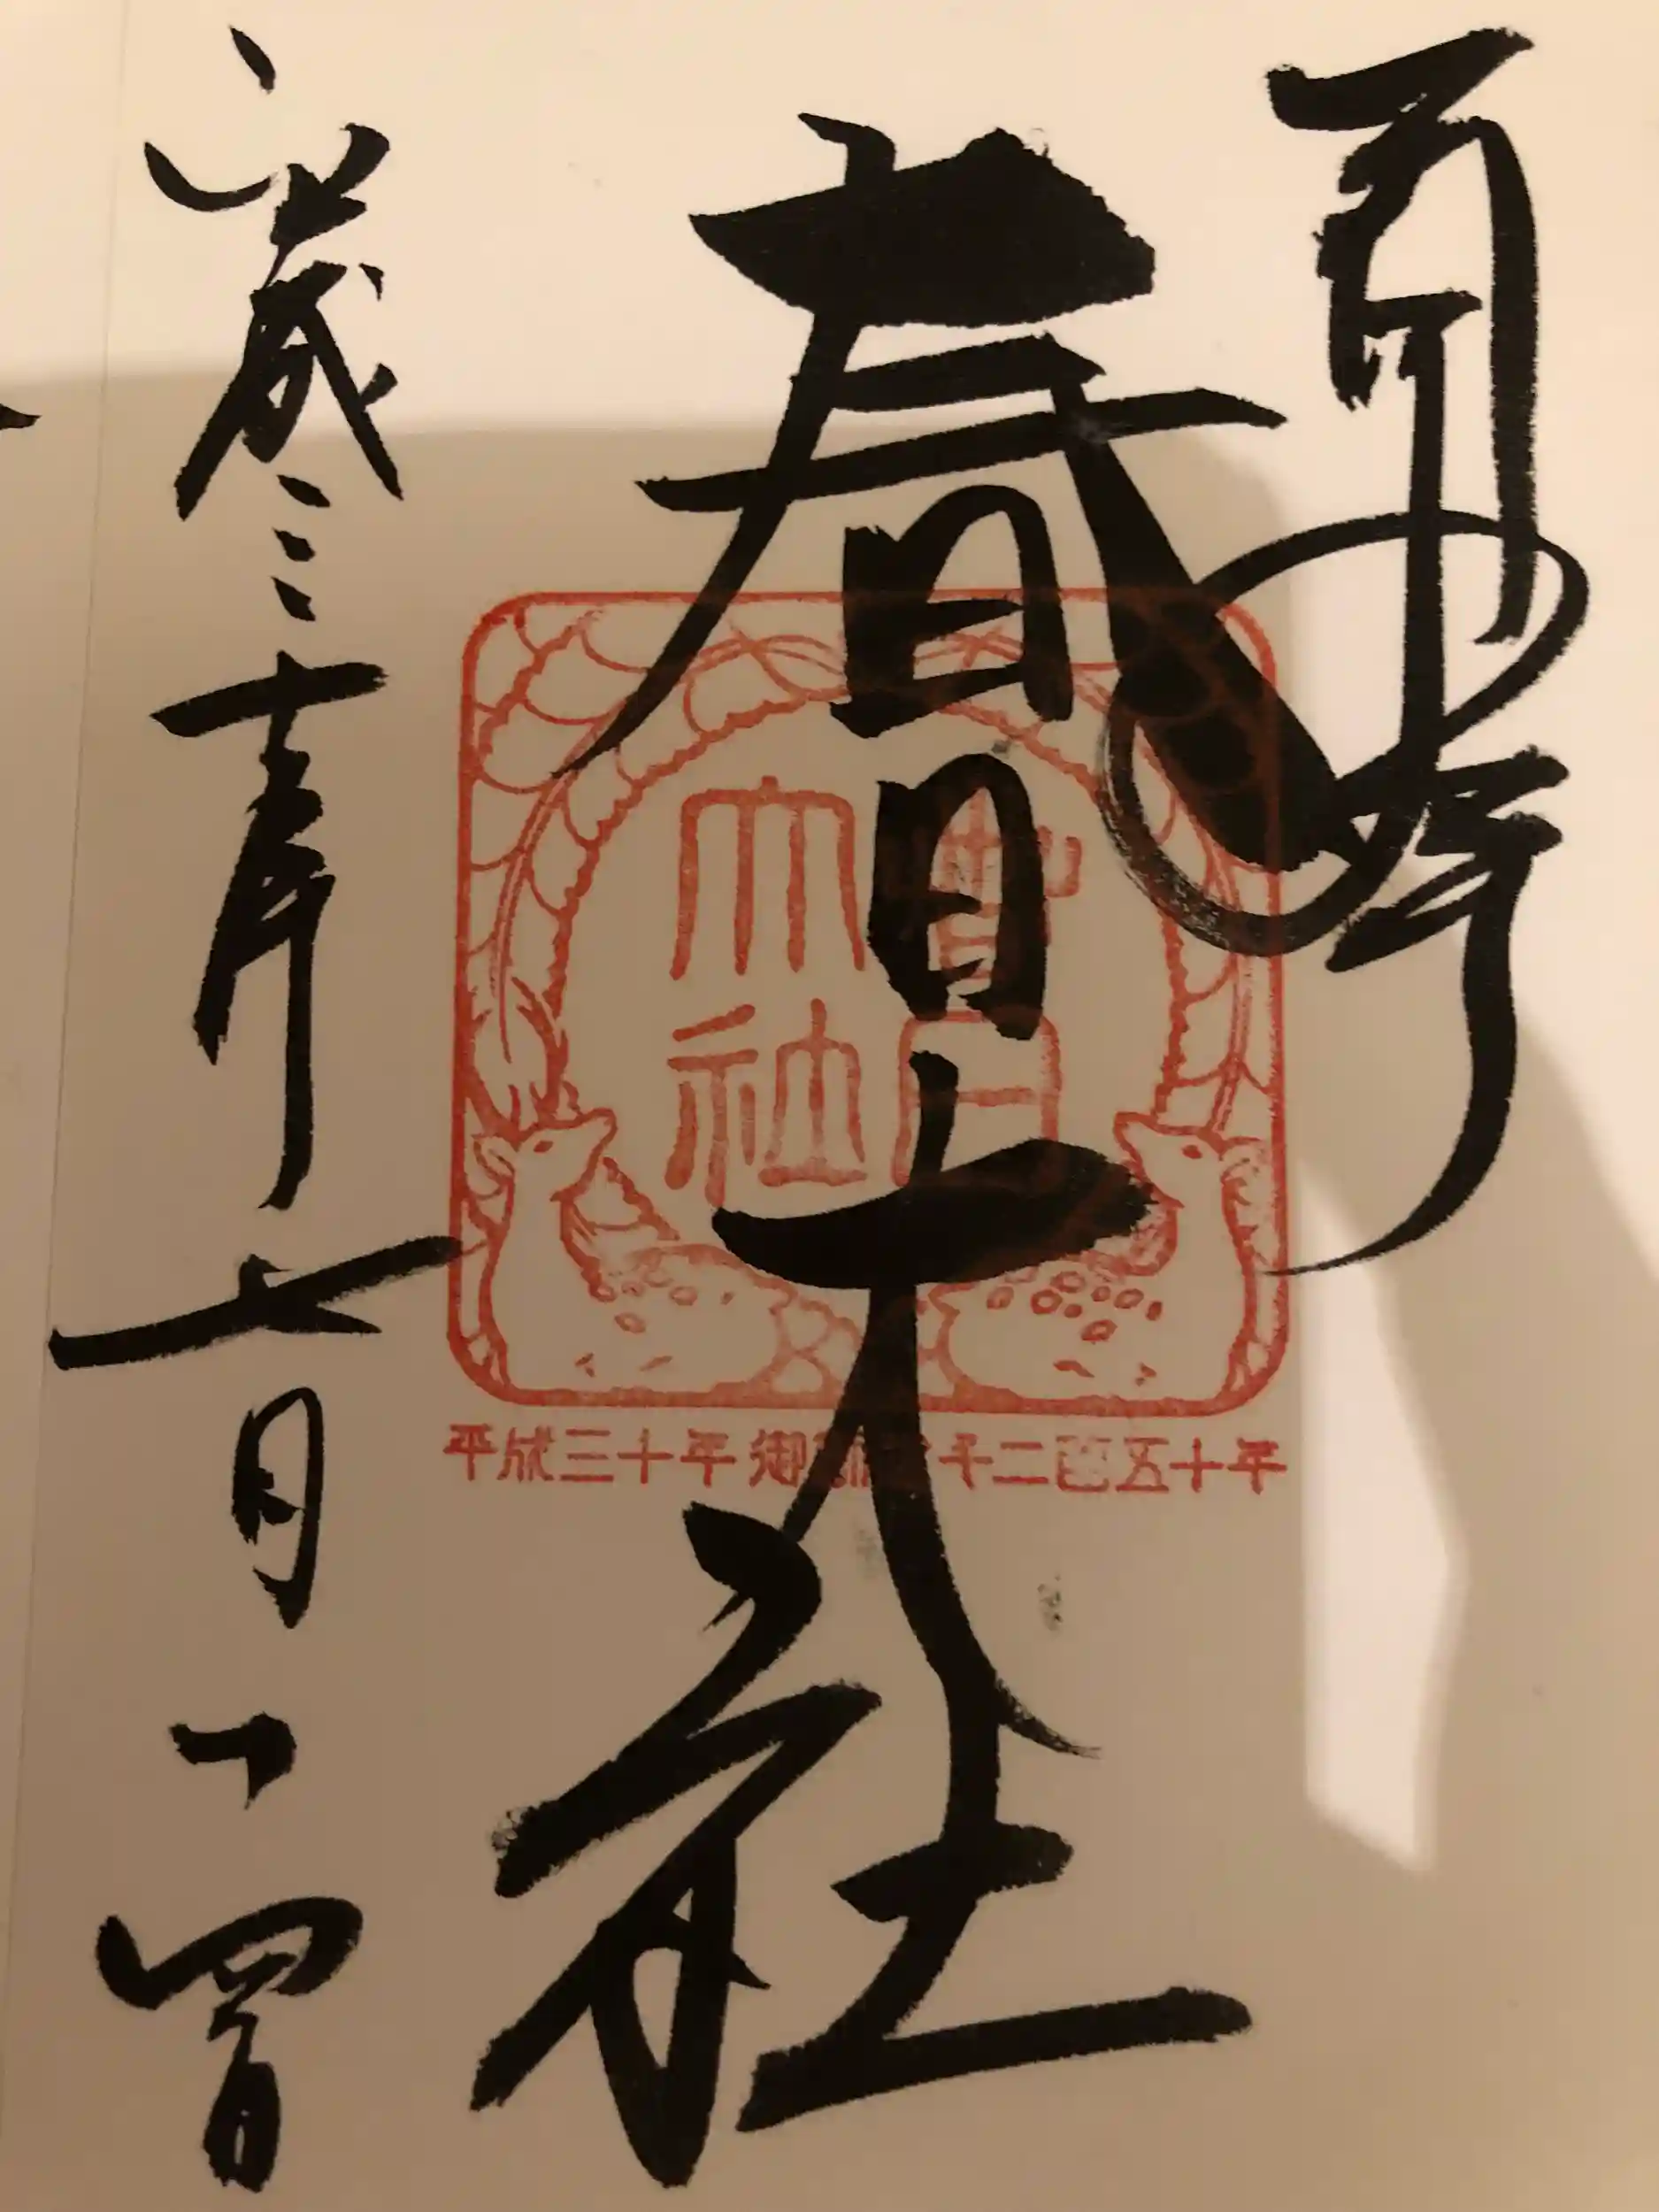 奉拝
春日大社
春日
大社
平成三十年 御創建 千二百五十年
平成三十年七月一四日